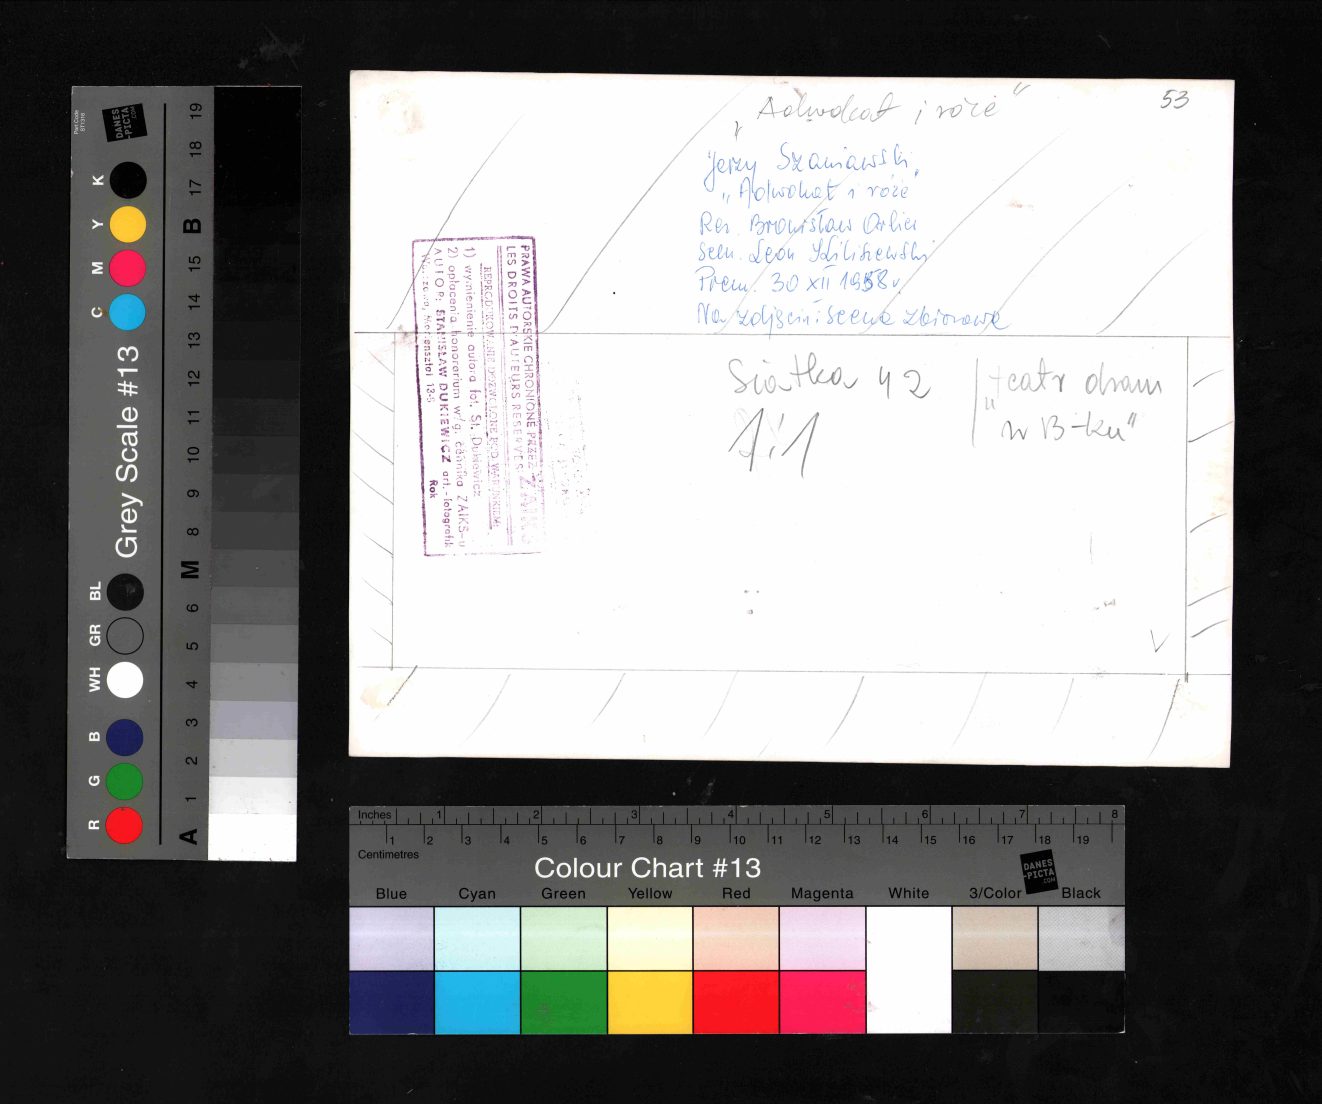 „Adwokat i róże"
53
Jerzy Szaniawski
„Adwokat i róże"
Reż. Bronisław Orlicz
Scen. Leon
Prem. 30 XII 1958 r.
Na zdjęciu: scena zbiorowa
Siatka 42
1:1
„teatr dram
w B-ku"
PRAWA AUTORSKIE CHRONIONE PRZEZ ZAIKS
LES DROITS D'AUTEURS RESERVES
REPRODUKOWANIE DOZWOLONE POD WARUNKIEM:
1) wymienienie autora fot. St. Dukiewicz
2) opłacenia honorarium w/g. cennika ZAIKS-u
AUTOR: STANISŁAW DUKIEWICZ art.-fotografik
Warszawa, Mariensztat 13-
Rok
Part Code
DANES
-PICTA
.COM
Grey Scale #13
K
Y
M
C
BL
GR
WH
B
G
R
19
18
17
B
15
14
13
12
11
10
9
8
M
6
5
4
3
2
1
A
Inches 1 2 3 4 5 6 7 8
1 2 3 4 5 6 7 8 9 10 11 12 13 14 15 16 17 18 19
Centimetres
Colour Chart #13
DANES
-PICTA
.COM
Blue Cyan Green Yellow Red Magenta White 3/Color Black